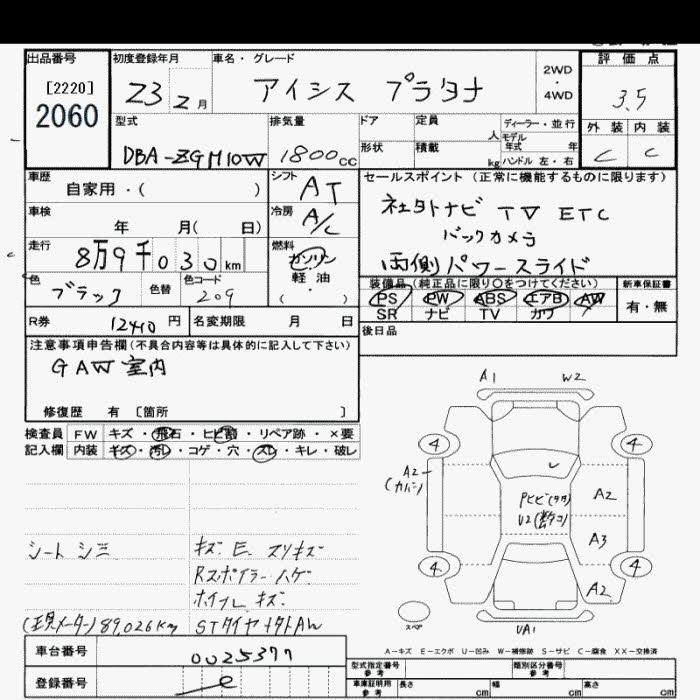 出品番号 初度登録年月 車名・グレード 評価点
[2220]
2060
23 2月 アイシス プラタナ 2WD・4WD 3.5
型式 排気量 ドア 定員 人 ディーラー・並行 外装 内装
DBA-ZGM10W 1800cc 形状 積載 kg モデル年式 年 ハンドル 左・右 C C
車歴 シフト セールスポイント (正常に機能するものに限ります)
自家用・( ) AT
車検 冷房 社外ナビ TV ETC
年 月( 日) A/C バックカメラ
走行 燃料 両側パワースライド
8万9千030km ガソリン・軽油・( )
色 色替 色コード 装備品(純正品に限り○をつけてください) 新車保証書
ブラック 209 PS PW ABS エアB AW 有・無
SR ナビ TV カワ
R券 12410円 名変期限 月 日 後日品
注意事項申告欄(不具合内容等は具体的に記入して下さい)
GAW室内
修復歴 有 〔箇所 〕
検査員 FW キズ・飛石・ヒビ割・リペア跡・×要
記入欄 内装 キズ・汚レ・コゲ・穴・スレ・キレ・破レ
A1 W2
4 4
A2 (カバン) A2
Pヒビ
U2
A3
4 4
A2
スペア UA1
シート シミ キズ E スリキズ
Rスポイラーハゲ
ホイール キズ
89,026km STタイヤ
A-キズ E-エクボ U-凹み W-補修跡 S-サビ C-腐食 XX-交換済
車台番号 0025377
登録番号
型式指定番号 参考 類別区分番号 参考
車庫証明用 参考 長さ cm 幅 cm 高さ cm